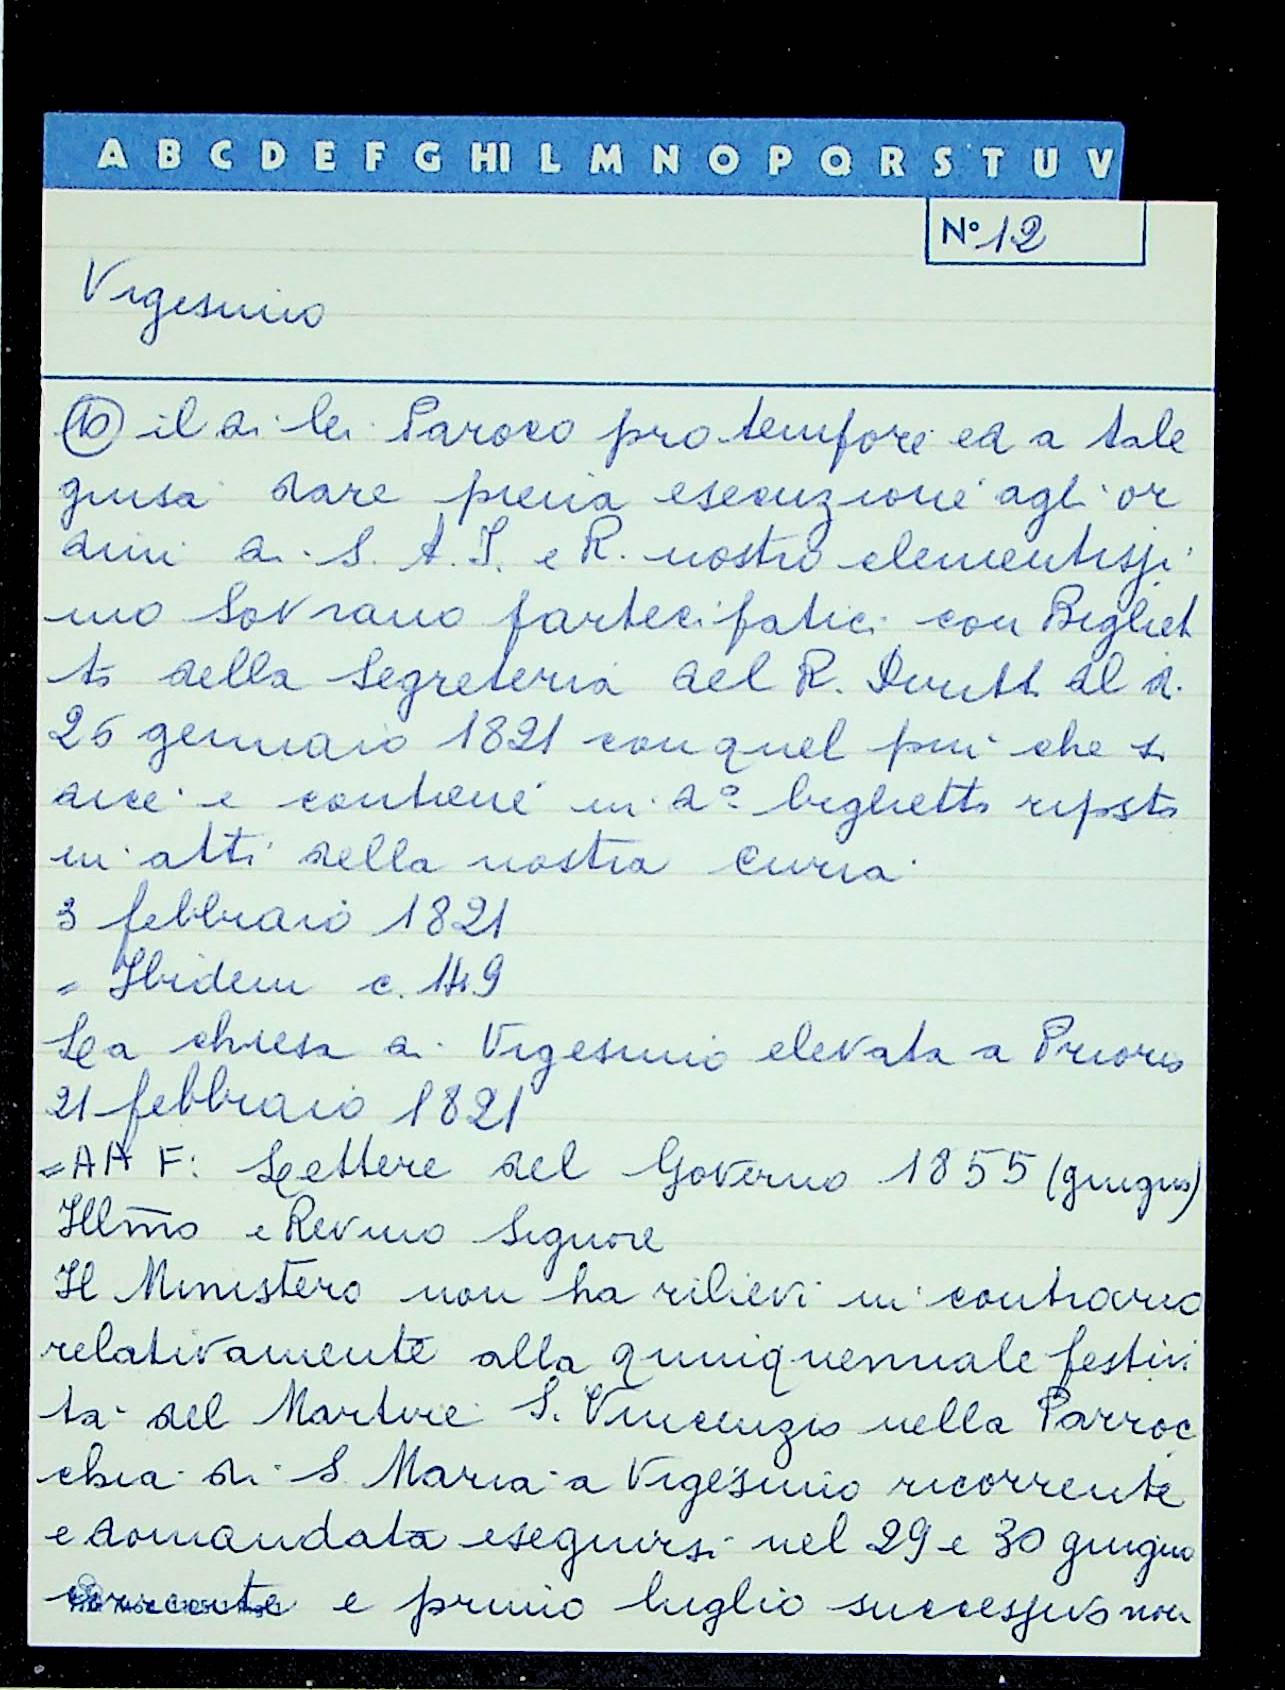 A B C D E F G HI L M N O P Q R S T U V
N° 12
Vigesimo
10 il di lei Paroco pro tempore ed a tale
guisa dare piena esecuzione agli or
dini di S. A. I. e R. nostro clementissi
mo Sovrano partecipatici con Bigliet
to della Segreteria del R. Diritt. del dì
26 gennaio 1821 con quel più che si
dice e contiene in d° biglietto riposto
in atti della nostra Curia
3 febbraio 1821
= Ibidem c. 149
La chiesa di Vigesimo elevata a Prioria
21 febbraio 1821
= AA F: Lettere del Governo 1855 (giugno)
Illmo e Revmo Signore
Il Ministero non ha rilievi in contrario
relativamente alla quinquennale festivi
tà del Martire S. Vincenzo nella Parroc
chia di S. Maria a Vigesimo ricorrente
e domandata eseguirsi nel 29 e 30 giugno
corrente e primo luglio successivo non